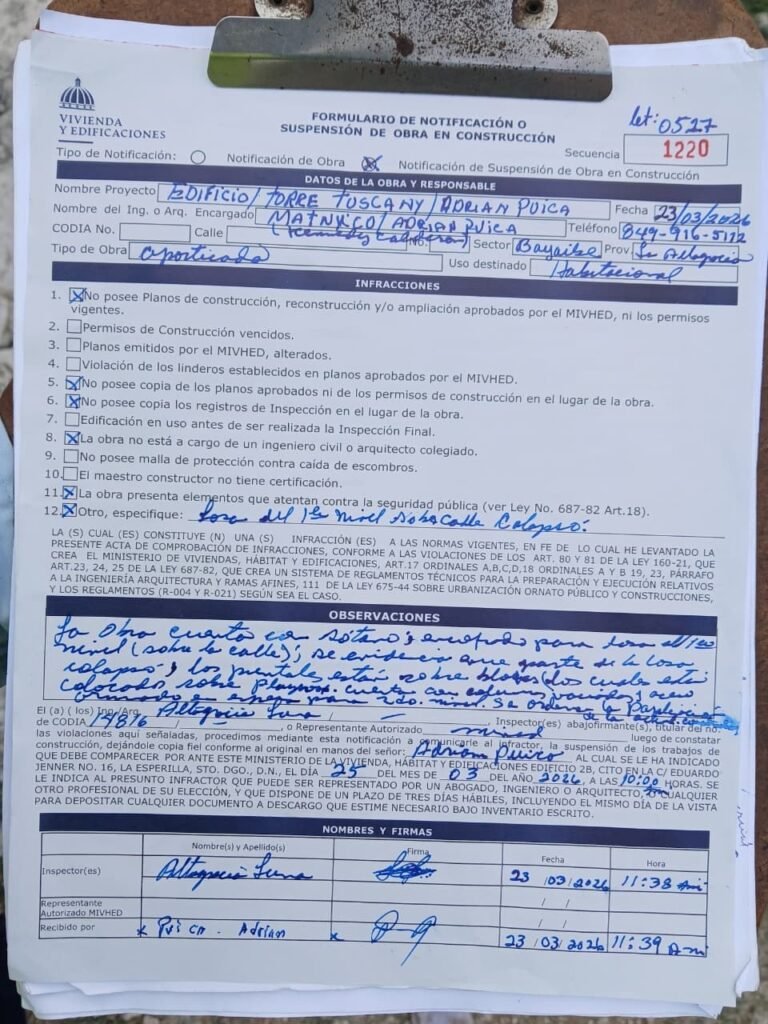 let: 0527
VIVIENDA
Y EDIFICACIONES
FORMULARIO DE NOTIFICACIÓN O
SUSPENSIÓN DE OBRA EN CONSTRUCCIÓN
Secuencia 1220
Tipo de Notificación: Notificación de Obra Notificación de Suspensión de Obra en Construcción
DATOS DE LA OBRA Y RESPONSABLE
Nombre Proyecto EDIFICIO/TORRE TUSCANY/ADRIAN PUICA Fecha 23/03/2026
Nombre del Ing. o Arq. Encargado /ADRIAN PUICA Teléfono 849-916-5172
CODIA No. Calle No. Sector Bayaibe Prov. La Altagracia
Tipo de Obra aporticada Uso destinado Habitacional
INFRACCIONES
1. X No posee Planos de construcción, reconstrucción y/o ampliación aprobados por el MIVHED, ni los permisos
vigentes.
2. Permisos de Construcción vencidos.
3. Planos emitidos por el MIVHED, alterados.
4. Violación de los linderos establecidos en planos aprobados por el MIVHED.
5. X No posee copia de los planos aprobados ni de los permisos de construcción en el lugar de la obra.
6. X No posee copia los registros de Inspección en el lugar de la obra.
7. Edificación en uso antes de ser realizada la Inspección Final.
8. X La obra no está a cargo de un ingeniero civil o arquitecto colegiado.
9. No posee malla de protección contra caída de escombros.
10. El maestro constructor no tiene certificación.
11. X La obra presenta elementos que atentan contra la seguridad pública (ver Ley No. 687-82 Art.18).
12. X Otro, especifique: Losa del 1er nivel sobre calle colapsó.
LA (S) CUAL (ES) CONSTITUYE (N) UNA (S) INFRACCIÓN (ES) A LAS NORMAS VIGENTES, EN FE DE LO CUAL HE LEVANTADO LA
PRESENTE ACTA DE COMPROBACIÓN DE INFRACCIONES, CONFORME A LAS VIOLACIONES DE LOS ART. 80 Y 81 DE LA LEY 160-21, QUE
CREA EL MINISTERIO DE VIVIENDAS, HÁBITAT Y EDIFICACIONES, ART.17 ORDINALES A,B,C,D,18 ORDINALES A Y B 19, 23, PÁRRAFO
ART.23, 24, 25 DE LA LEY 687-82, QUE CREA UN SISTEMA DE REGLAMENTOS TÉCNICOS PARA LA PREPARACIÓN Y EJECUCIÓN RELATIVOS
A LA INGENIERÍA ARQUITECTURA Y RAMAS AFINES, 111 DE LA LEY 675-44 SOBRE URBANIZACIÓN ORNATO PÚBLICO Y CONSTRUCCIONES,
Y LOS REGLAMENTOS (R-004 Y R-021) SEGÚN SEA EL CASO.
OBSERVACIONES
La obra cuenta con sótano; encofrado para losa del 1er
nivel (sobre la calle); se evidencia que parte de la losa
colapsó; los puntales están sobre blocks los cuales están
colocados sobre cuenta con columnas vaciadas; acero
armado en espera para 2do. nivel. Se ordena la Paralización
de la
El (a) ( los) Ing./Arq. Altagracia Luna Inspector(es) abajofirmante(s), titular del no.
de CODIA 15876, o Representante Autorizado mived luego de constatar
las violaciones aquí señaladas, procedimos mediante esta notificación a comunicarle al infractor, la suspensión de los trabajos de
construcción, dejándole copia fiel conforme al original en manos del señor: Adrian Puica AL CUAL SE LE HA INDICADO
QUE DEBE COMPARECER POR ANTE ESTE MINISTERIO DE LA VIVIENDA, HÁBITAT Y EDIFICACIONES EDIFICIO 2B, CITO EN LA C/ EDUARDO
JENNER NO. 16, LA ESPERILLA, STO. DGO., D.N., EL DÍA 25 DEL MES DE 03 DEL AÑO 2026, A LAS 10:00 HORAS. SE
LE INDICA AL PRESUNTO INFRACTOR QUE PUEDE SER REPRESENTADO POR UN ABOGADO, INGENIERO O ARQUITECTO, O CUALQUIER
OTRO PROFESIONAL DE SU ELECCIÓN, Y QUE DISPONE DE UN PLAZO DE TRES DÍAS HÁBILES, INCLUYENDO EL MISMO DÍA DE LA VISTA
PARA DEPOSITAR CUALQUIER DOCUMENTO A DESCARGO QUE ESTIME NECESARIO BAJO INVENTARIO ESCRITO.
NOMBRES Y FIRMAS
Nombre(s) y Apellido(s) Firma Fecha Hora
Inspector(es) Altagracia Luna 23/03/2026 11:38 am
Representante
Autorizado MIVHED / /
/ /
Recibido por x Puica Adrian x 23/03/2026 11:39 Am